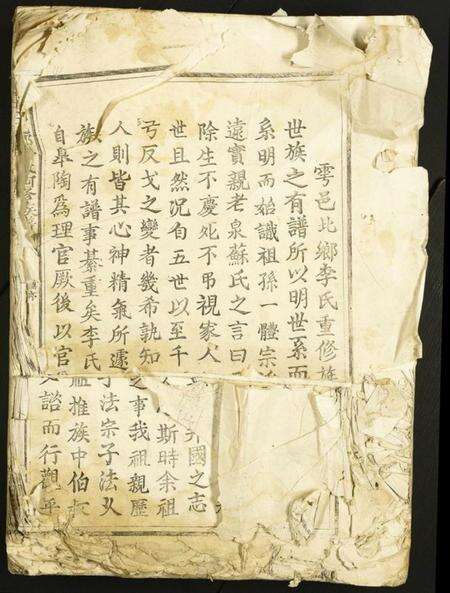 雩邑北鄉李氏重修族
世族之有譜所以明世系而
系明而始識祖孫一體宗
遠實親老泉蘇氏之言曰
除生不慶死不吊視家人
世且然況自五世以至千
弓反戈之變者幾希孰知
人則皆其心神精氣所遞
族之有譜事綦重矣李氏
自皋陶為理官厥後以官
升國之志
斯時余祖
之事我祖親歷
子法宗子法乂
推族中伯
諮而行觀平